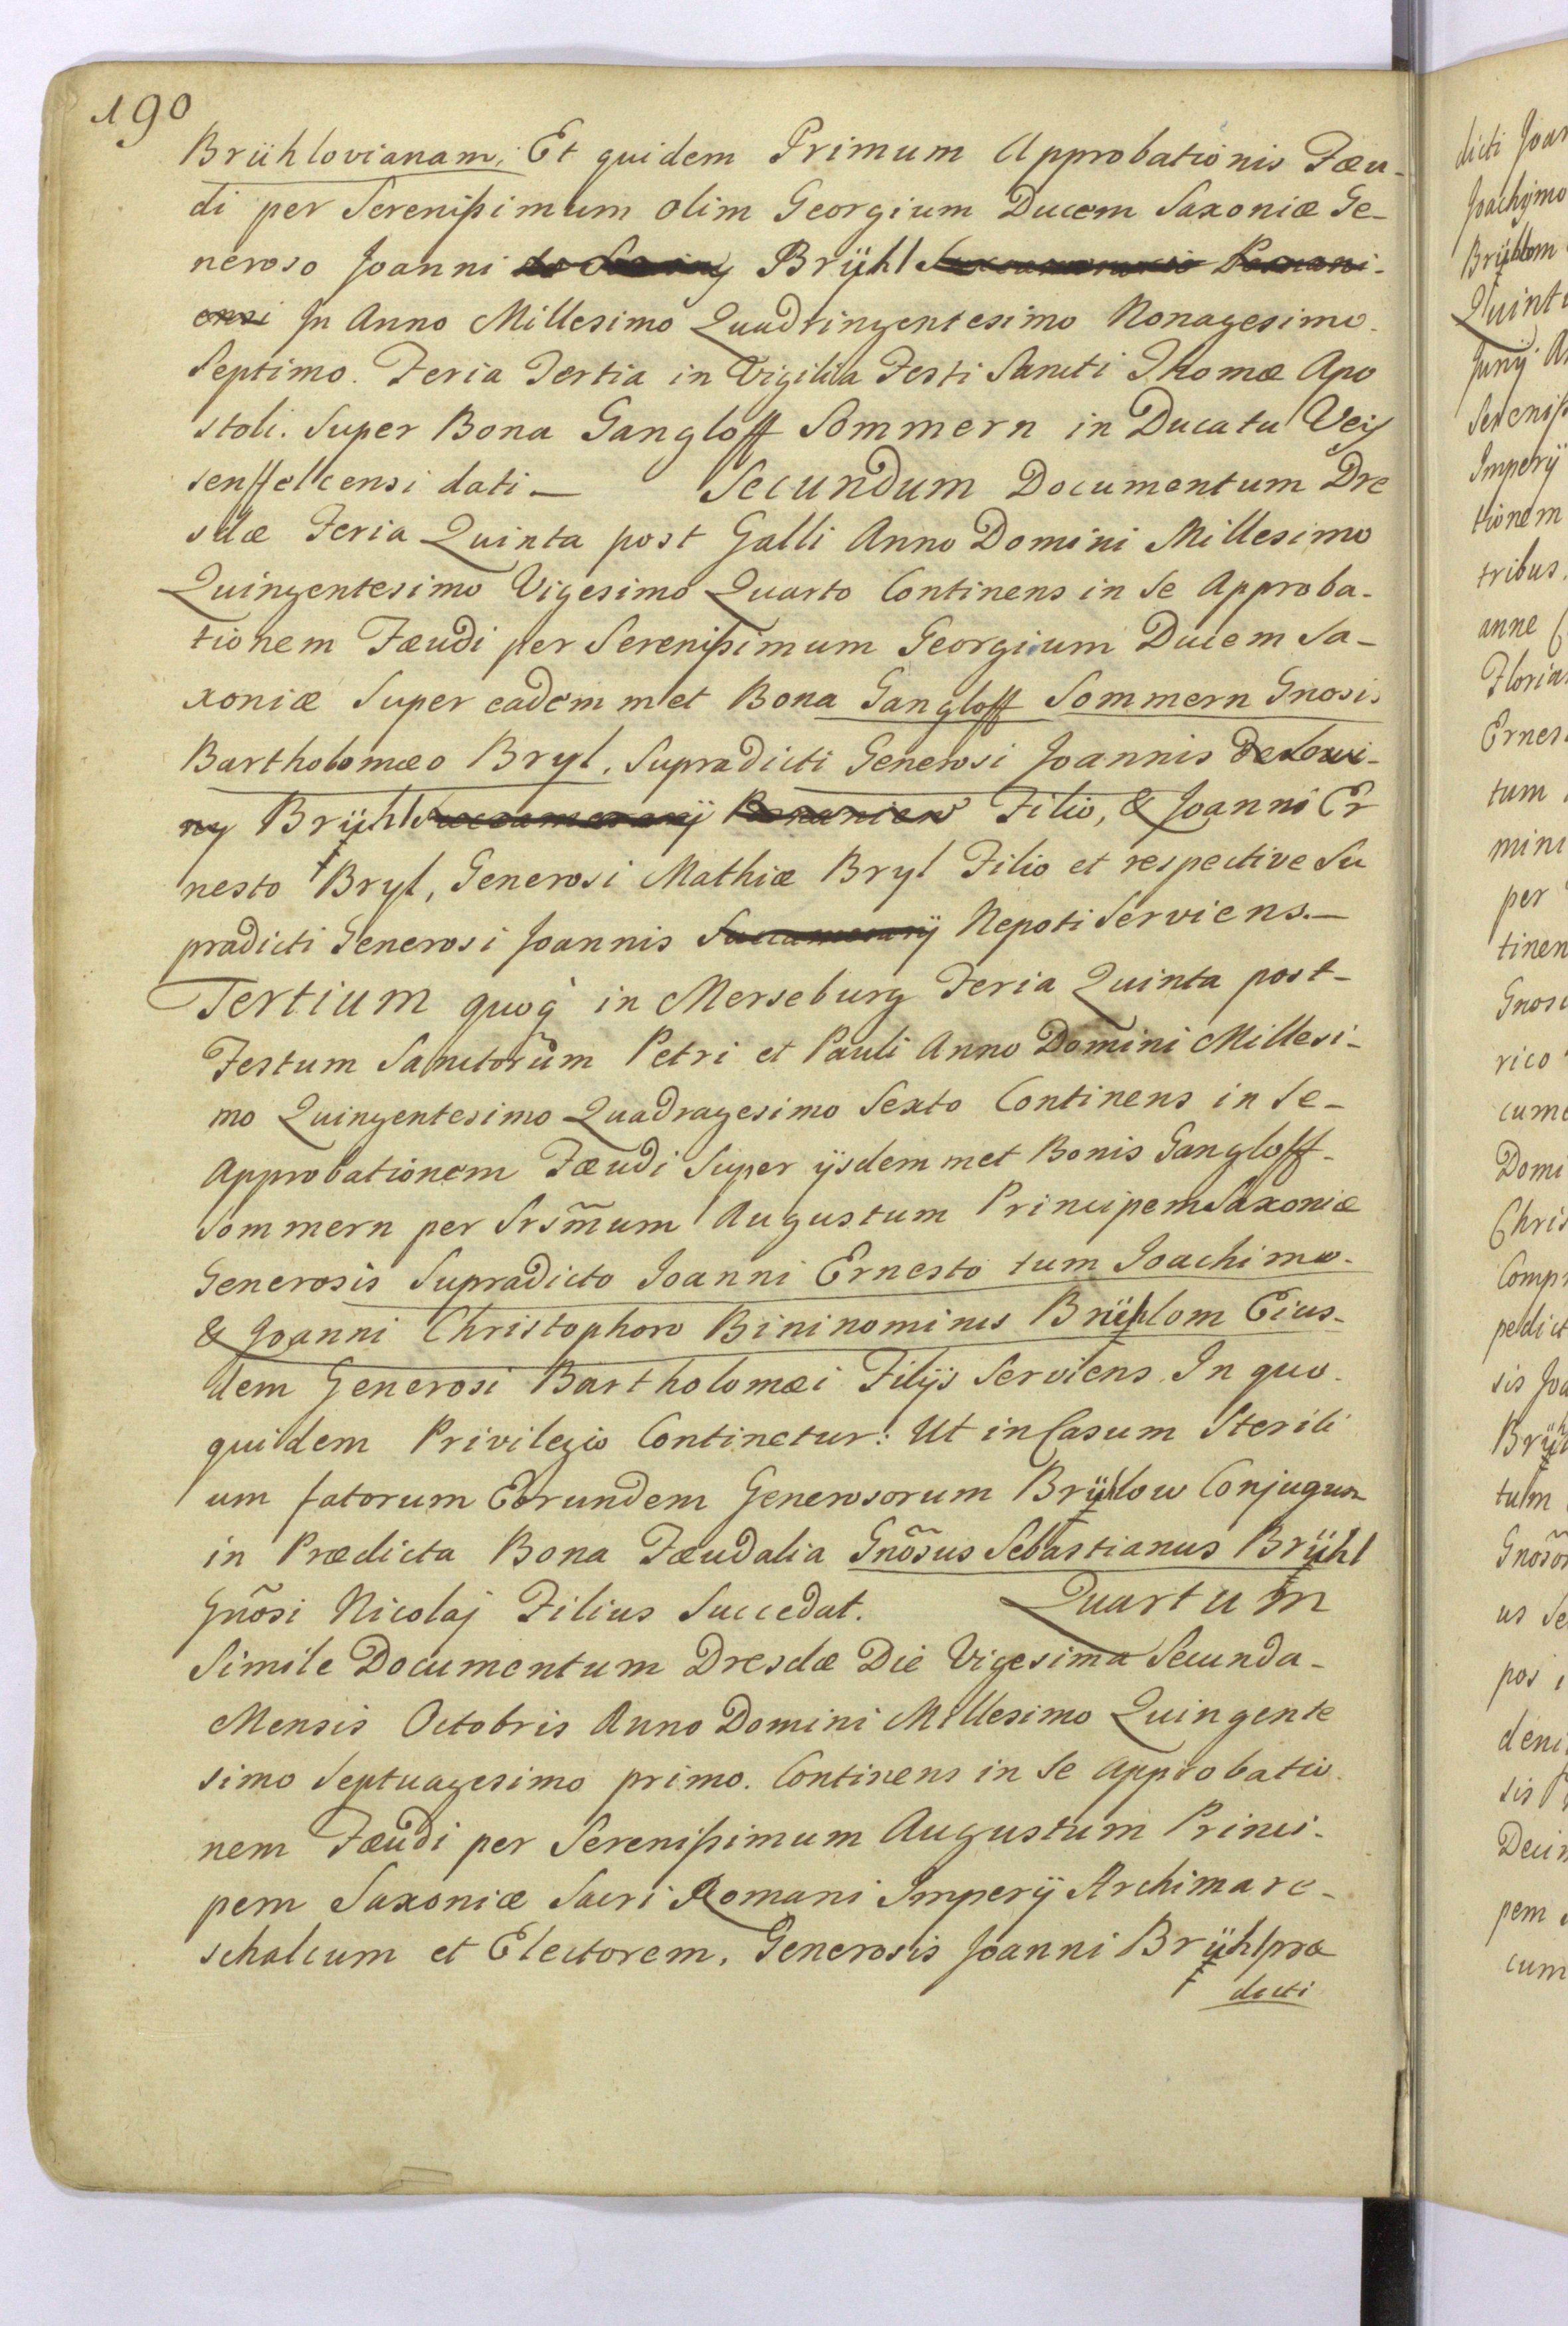 190
Brühlovianam, Et quidem Primum Approbationis Fæu-
di per Serenißimum olim Georgium Ducem Saxoniæ Ge-
neroso Joanni Brÿhl
ensi Jn Anno Millesimo Quadringentesimo Nonagesimo.
Septimo. Feria Tertia in Vigilia Festi Sancti Thomæ Apo
stoli. Super Bona Gangloff Sommern in Ducatu Veis
senffelcensi dati — Secundum Documentum Dre
sdæ Feria Quinta post Galli Anno Domini Millesimo
Quingentesimo Vigesimo Quarto Continens in Se Approba-
tionem Fæudi per Serenißimum Georgium Ducem Sa-
xoniæ Super eadem met Bona Gangloff Sommern Gnosis
Bartholomæo Bryl, Supradicti Generosi Joannis de Lowi-
ny Brÿhl Succamerarÿ Posnanien Filio, & Joanni Er
nesto Bryl, Generosi Mathiæ Bryl Filio et respective Su
pradicti Generosi Joannis Succamerarÿ Nepoti Serviens.—
Tertium quoq in Merseburg Feria Quinta post-
Festum Sanctorũm Petri et Pauli Anno Domini Millesi-
mo Quingentesimo Quadragesimo Sexto Continens in Se-
Approbationem Fæudi Super ÿsdem met Bonis Gangloff-
Sommern per Srsm̃um Augustum Principem Saxoniæ
Generosis Supradicto Joanni Ernesto tum Joachimo-
& Joanni Christophoro Bininominis Brÿhlom Eius-
dem Generosi Bartholomæi Filÿs Serviens. In quo-
quidem Privilegio Continetur: Ut in Casum Sterili
um fatorum Eorundem Generosorum Brÿhlow Conjugum
in Prædicta Bona Fæudalia Gnõsus Sebastianus Brÿhl
Gnõsi Nicolaj Filius Succedat. Quartum
Simile Documentum Dresdæ Die Vigesima Secunda-
Mensis Octobris Anno Domini Millesimo Quingente
simo Septuagesimo primo. Continens in Se Approbatio.
nem Fæudi per Serenißimum Augustum Princi-
pem Saxoniæ Sacri Romani Imperÿ Archimare-
schalcum et Electorem, Generosis Joanni Brÿhl præ
dicti
dicti Joan
Joachymo
Brÿhlom
Quint
Junÿ
Sereniß
Imperÿ
tionem
tribus.
anne
Florian
Ernes
tum
mini
per
tinen
Gnosi
rico
cume
Domi
Chris
Comp
pedict
sis Joa
Brÿh
tum
Gnosor
us Se
pos i
deni
sis
Decim
pem
cum